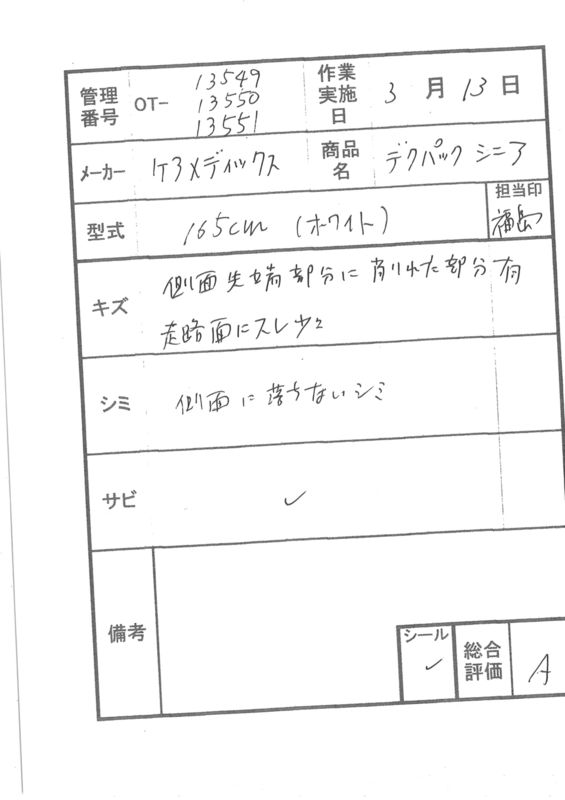 管理番号 OT- 13549 13550 13551 作業実施日 3月13日
メーカー ケアメディックス 商品名 デクパック シニア
型式 165cm (ホワイト) 担当印 福島
キズ 側面先端部分に削れた部分有
走路面にスレ少々
シミ 側面に落ちないシミ
サビ ✓
備考
シール ✓ 総合評価 A